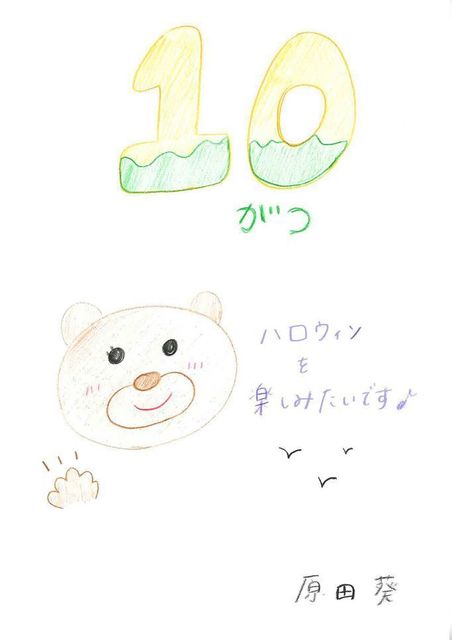 10
がつ
ハロウィン
を
楽しみたいです♪
原田葵